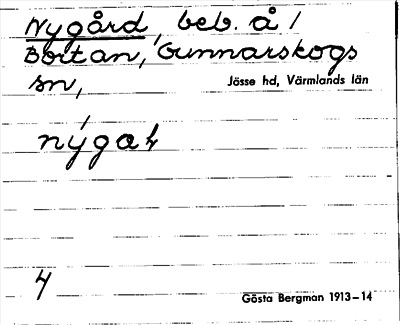 Nygård, beb. å /
Bortan, Gunnarskogs
sn,
Jösse hd, Värmlands län
4
Gösta Bergman 1913–14